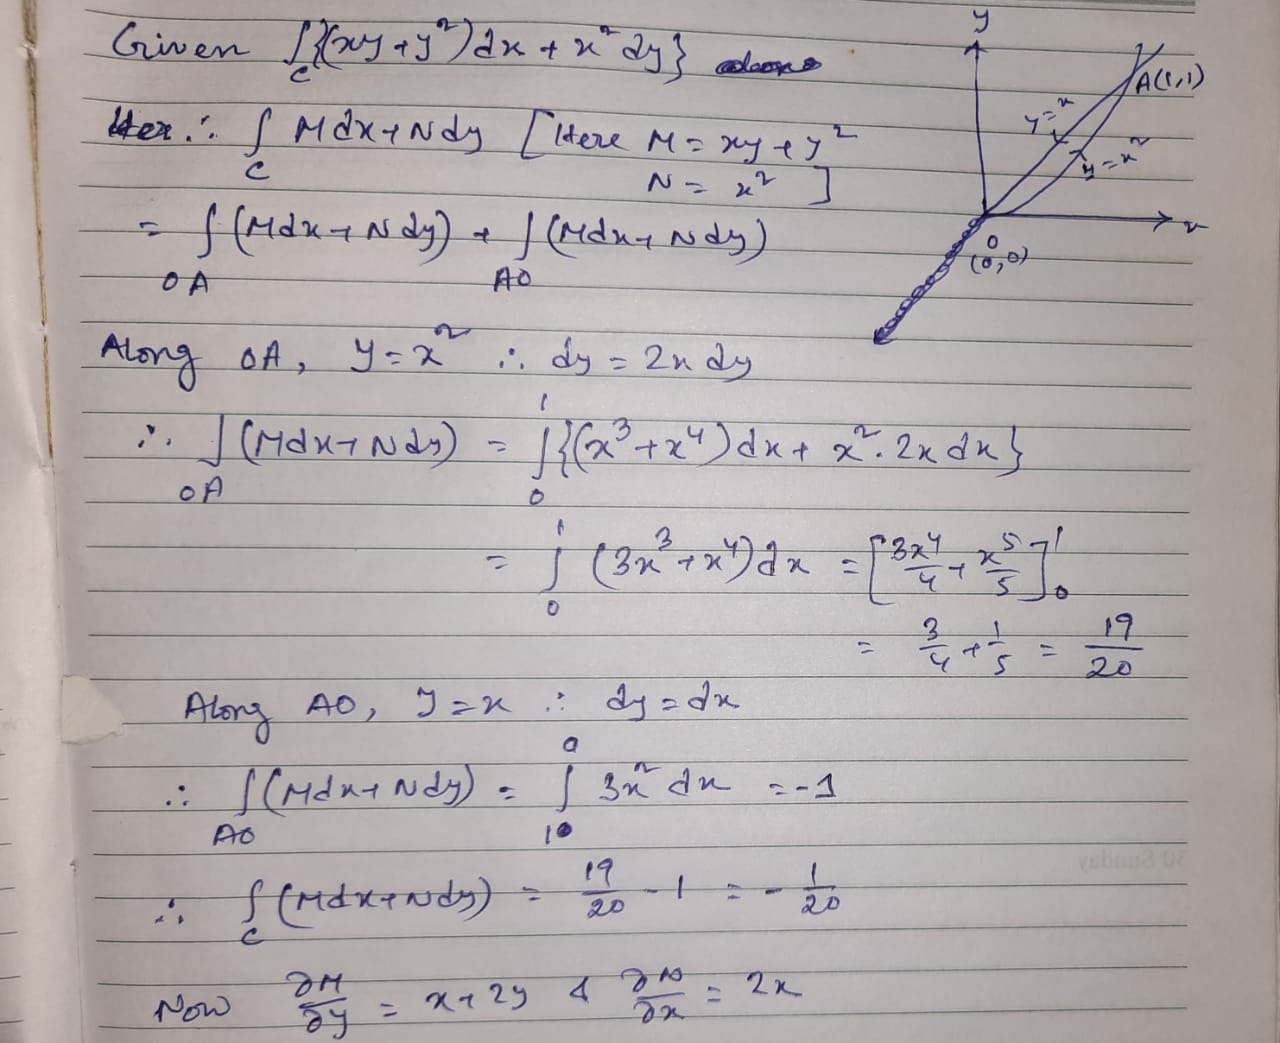 Given ∫_C {(xy+y²)dx + x²dy}
y
A(1,1)
y=x
y=x²
x
O
(0,0)
∴ ∫_C Mdx+Ndy [Here M = xy+y²
N = x² ]
= ∫_OA (Mdx+Ndy) + ∫_AO (Mdx+Ndy)
Along OA, y=x² ∴ dy = 2x dy
∴ ∫_OA (Mdx+Ndy) = ∫_0^1 {(x³+x⁴)dx + x².2x dx}
= ∫_0^1 (3x³+x⁴)dx = [3x⁴/4 + x⁵/5]_0^1
= 3/4 + 1/5 = 19/20
Along AO, y=x ∴ dy=dx
∴ ∫_AO (Mdx+Ndy) = ∫_1^0 3x² dx = -1
∴ ∫_C (Mdx+Ndy) = 19/20 - 1 = - 1/20
Now ∂M/∂y = x+2y & ∂N/∂x = 2x
30 Sunday